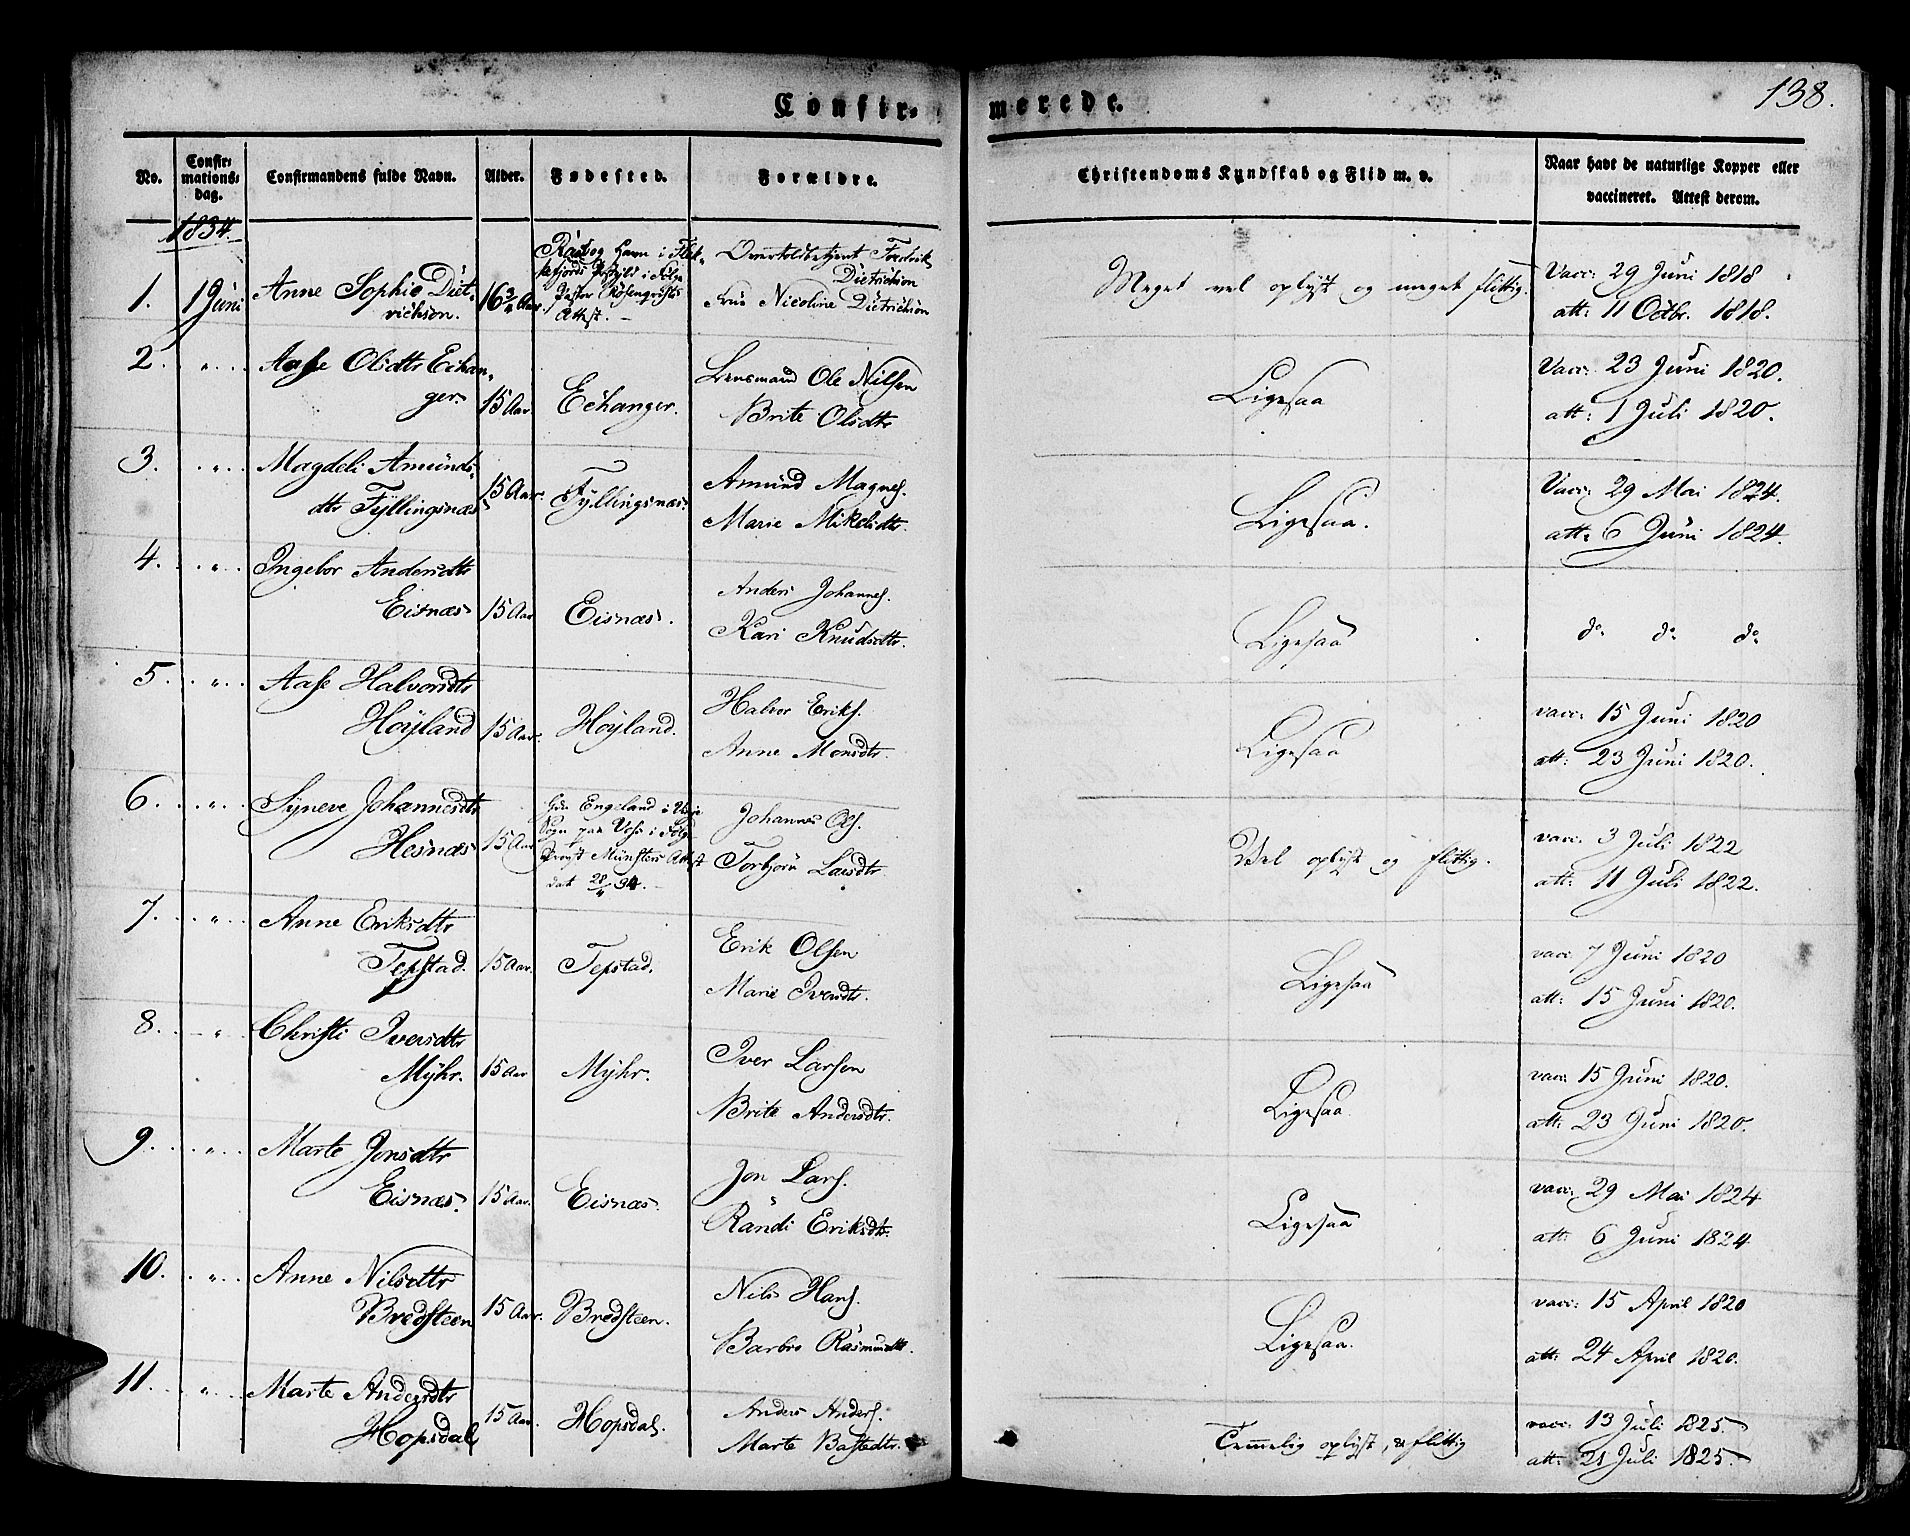 Confir-
merede.
138.
No.
Confir-
mations-
dag.
Confirmandens fulde Navn.
Alder.
Fødested.
Forældre.
Christendoms Kyndskab og Flid m. v.
Naar havt de naturlige Kopper eller
vaccineret. Attest derom.
1834.
1. 1 Juni Anne Sophie Diet-
richson. 16 3/4 Aar.
Havn i Flek-
kefjords i Følge
Pastor Rosenqvists
Attst.
Overtoldbetjent Fredrik
Dietrichson
Frue Nicoline Dietrichson
Meget vel oplyst og meget flittig.
Vacc: 29 Juni 1818
att: 11 Octbr. 1818.
2. " Aase Olsdtr Echan-
ger. 15 Aar. Echanger.
Lensmand Ole Nilsen
Brite Olsdtr
Ligesaa
Vacc: 23 Juni 1820.
att: 1 Juli 1820.
3. " Magdeli Amunds-
dtr Fyllingsnæs 15 Aar. Fyllingsnæs.
Amund Magnes.
Marie Mikelsdtr.
Ligesaa.
Vacc: 29 Mai 1824.
att: 6 Juni 1824.
4. " Ingebor Andersdtr
Eisnæs 15 Aar Eisnæs.
Anders Johannes.
Kari Knudsdtr.
Ligesaa
do do do
5. " Aase Halvorsdtr
Høyland 15 Aar. Høyland.
Halvor Eriks.
Anne Monsdtr.
Ligesaa
vacc: 15 Juni 1820
att: 23 Juni 1820.
6. " Syneve Johannesdtr
Hesnæs 15 Aar
Gdn Engeland i
Sogn paa Voss i Følge
Provst Münsters Attest
dat 28/4 34.
Johannes Ols.
Torbjøru Larsdtr.
Vel oplyst og flittig.
vacc: 3 Juli 1822
att: 11 Juli 1822.
7. " Anne Eriksdtr
Tepstad. 15 Aar. Tepstad.
Erik Olsen
Marie Iversdtr.
Ligesaa
vacc 7 Juni 1820
att: 15 Juni 1820.
8. " Christi Iversdtr
Myhr. 15 Aar Myhr.
Iver Larsen
Brite Andersdtr.
Ligesaa.
vacc: 15 Juni 1820.
att: 23 Juni 1820.
9. " Marte Jonsdtr
Eisnæs. 15 Aar. Eisnæs.
Jon Lars.
Randi Eriksdtr.
Ligesaa
vacc: 29 Mai 1824
att: 6 Juni 1824
10. " Anne Nilsdtr
Bredsteen 15 Aar. Bredsteen.
Nils Hans.
Barbro Rasmusdtr.
Ligesaa.
vacc: 15 April 1820
att: 24 April 1820.
11. " Marte Andersdtr
Hopsdal 15 Aar. Hopsdal.
Anders Anders.
Marte Bastedtr.
Temmelig oplyst, & flittig
vacc: 13 Juli 1825.
att: 21 Juli 1825.